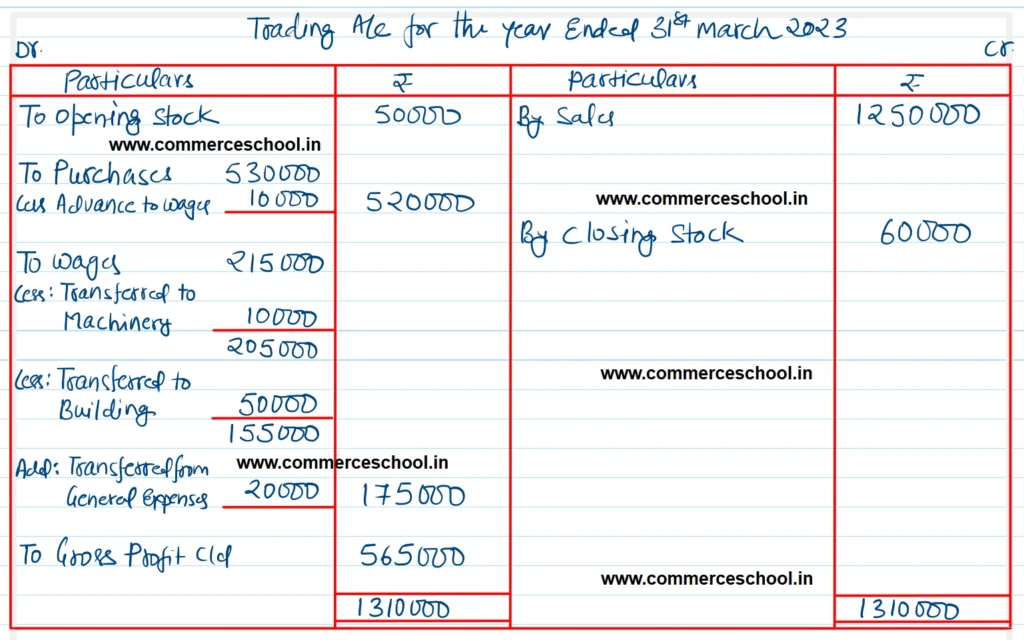 Trading A/c for the year Ended 31st march 2023
Dr. Cr.
Particulars ₹ Particulars ₹
To Opening Stock 50000 By Sales 1250000
www.commerceschool.in
To Purchases 530000
Less Advance to wages 10000 520000 www.commerceschool.in
By Closing Stock 60000
To wages 215000
Less: Transferred to
Machinery 10000
205000
www.commerceschool.in
Less: Transferred to
Building 50000
155000
Add: Transferred from www.commerceschool.in
General Expenses 20000 175000
To Gross Profit C/d 565000
www.commerceschool.in
1310000 1310000